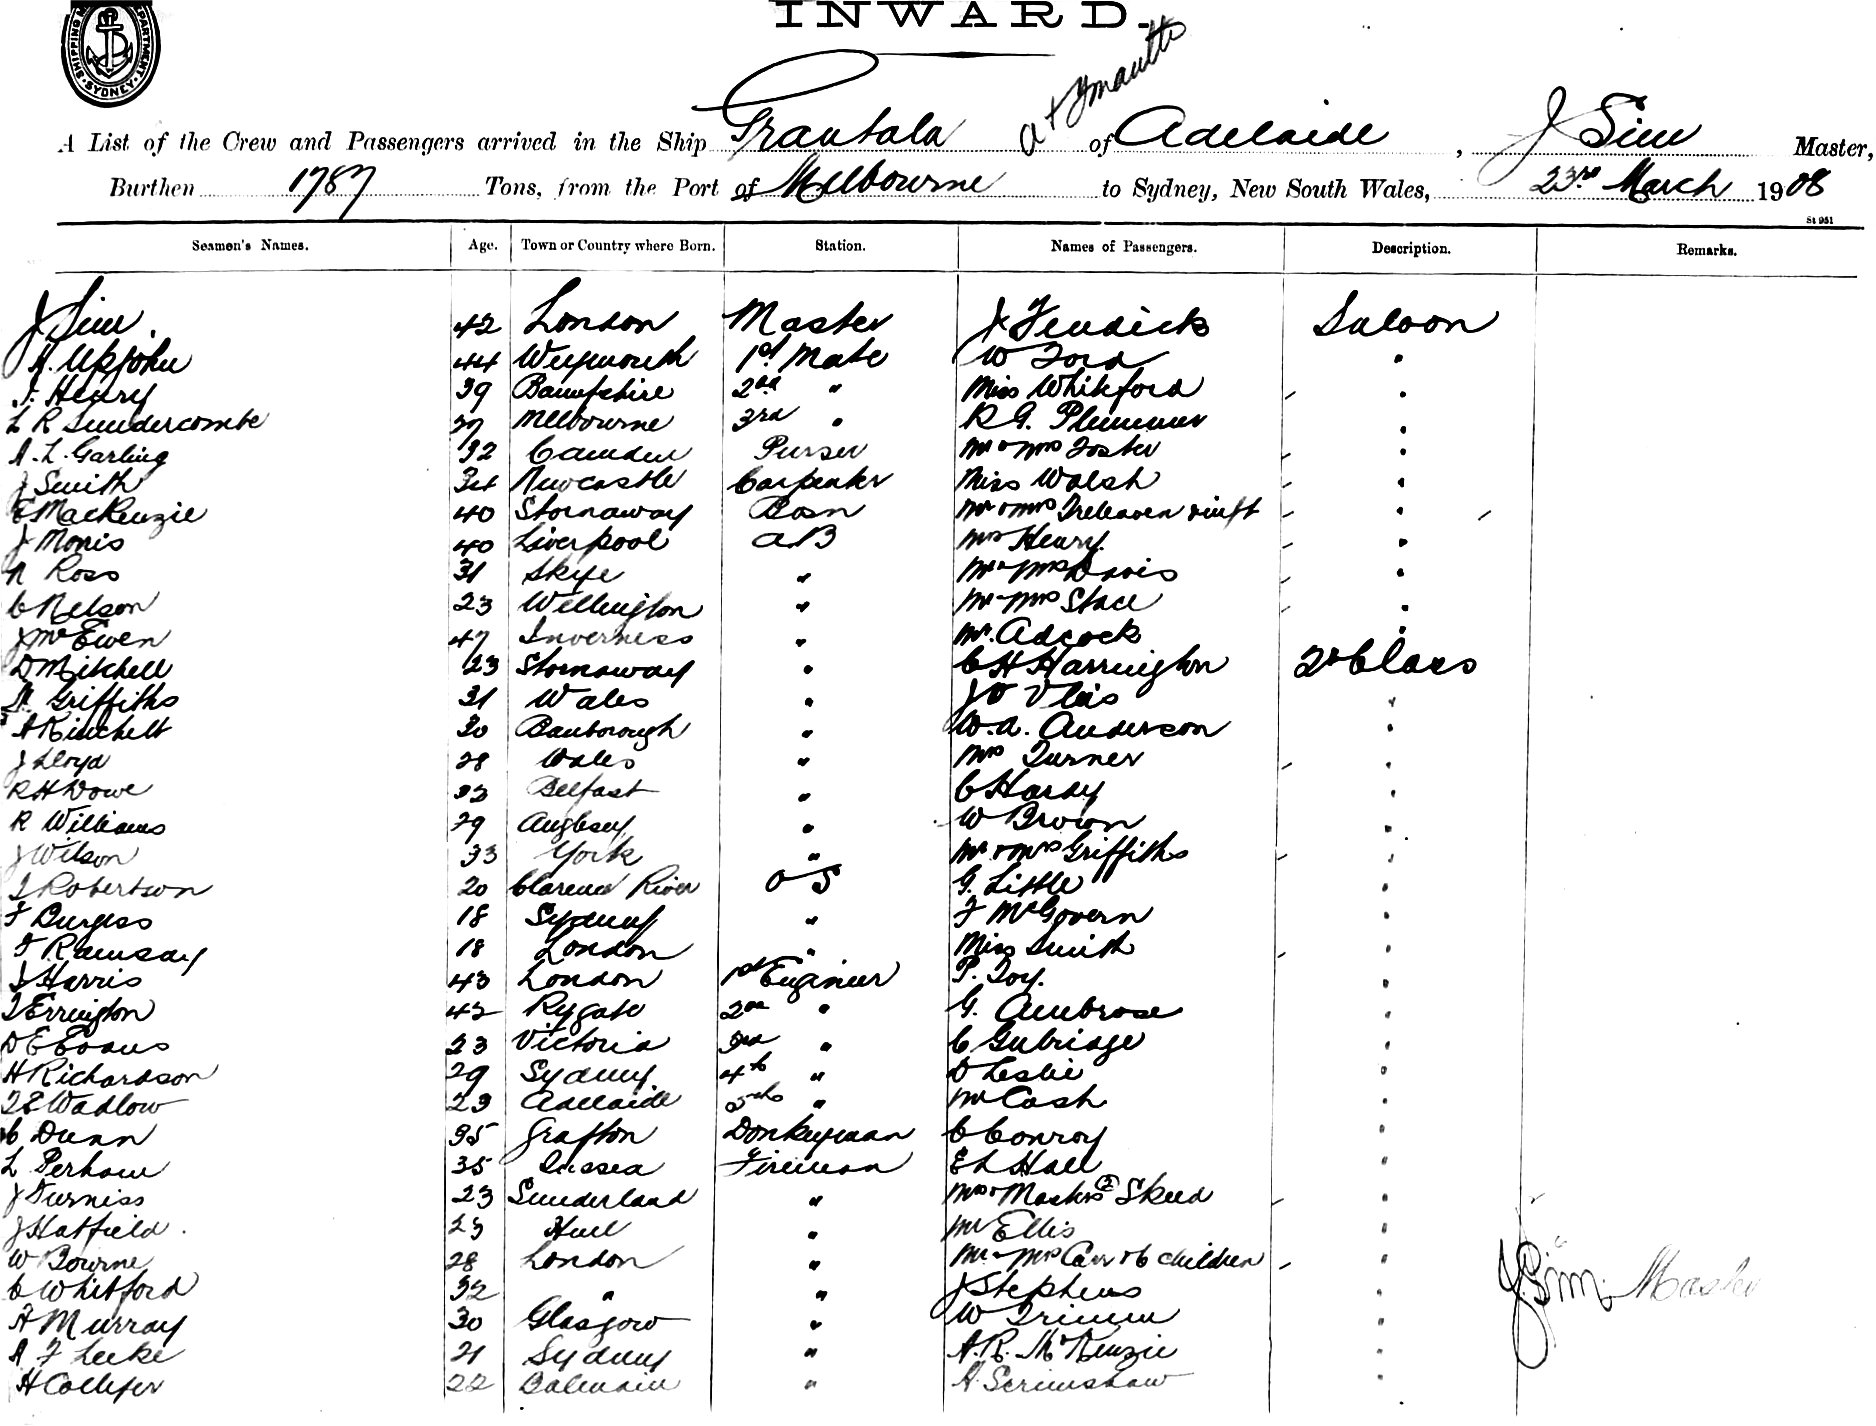 INWARD.
SHIPPING DEPARTMENT SYDNEY
A List of the Crew and Passengers arrived in the Ship Grantala of Adelaide, J Sim Master,
Burthen 1787 Tons, from the Port of Melbourne to Sydney, New South Wales, 23rd March 1908
St 951
Seamen's Names. Age. Town or Country where Born. Station. Names of Passengers. Description. Remarks.
J Sim. 42 London Master J Fendick Saloon
A. Upjohn 44 Weymouth 1st Mate W Ford "
J. Henry 39 2nd " Miss Whitford "
L R Sundercombe 27 Melbourne 3rd " R G. Plummer "
A. L. Garling 32 Camden Purser Mr & Mrs Foster "
J Smith 34 Newcastle Carpenter Miss Walsh "
E MacKenzie 40 Stornaway Bosn Mr & Mrs Treleaven & inft "
J Monis 40 Liverpool A.B Mrs Henry "
N Ross 31 Skye " Mr & Mrs Davis "
C Nelson 23 Wellington " Mr & Mrs Stace "
J McEwen 47 Inverness " Mr. Adcock "
D Mitchell 23 Stornaway " C H Harrington 2d Class
A Griffiths 31 Wales " J W "
A Rinchelt 30 " W. A. Anderson "
J Lloyd 28 Wales " Mrs Turner "
R H Dowe 32 Belfast " C Hardy "
R Williams 29 Anglesey " W Brown "
J Wilson 33 York " Mr & Mrs Griffiths "
J Robertson 20 Clarence River O S G. Little "
F Burgess 18 Sydney " F McGovern "
F Ramsay 18 London " Miss Smith "
J Harris 43 London 1st Engineer P. Foy. "
J Errington 42 Rygate 2nd " G. Ambrose "
D E Evans 23 Victoria 3rd " C Gubriage "
H Richardson 29 Sydney 4th " D Leslie "
23 Adelaide 5th " Mr Cash "
C Dunn 35 Grafton Donkeyman C Conroy "
L Perham 35 Sussex Fireman E L Hall "
J Furniss 23 Sunderland " Mrs & Masters (2) Skeed "
J Hatfield. 23 Hull " Mr Ellis "
W Bourne 28 London " Mr & Mrs Carr & 6 children "
C Whitford 32 " " J Stephens " J. Sim. Master
A Murray 30 Glasgow " W Trimm "
A F Leeke 21 Sydney " A. R. McKenzie "
H Colliver 22 Balmain " A. Scrimshaw "